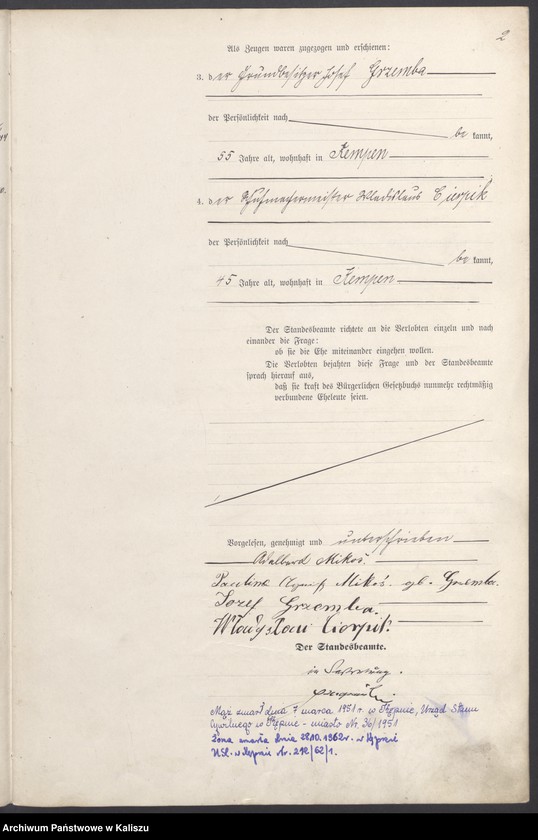 2
Als Zeugen waren zugezogen und erschienen:
3. der Grundbesitzer Josef Grzemba
der Persönlichkeit nach
be kannt,
55 Jahre alt, wohnhaft in Kempen
4. der Schuhmachermeister Wladislaus Cierpik
der Persönlichkeit nach
be kannt,
45 Jahre alt, wohnhaft in Kempen
Der Standesbeamte richtete an die Verlobten einzeln und nach
einander die Frage:
ob sie die Ehe miteinander eingehen wollen.
Die Verlobten bejahten diese Frage und der Standesbeamte
sprach hierauf aus,
daß sie kraft des Bürgerlichen Gesetzbuchs nunmehr rechtmäßig
verbundene Eheleute seien.
Vorgelesen, genehmigt und unterschrieben
Adalbert Mikoś.
Paulina Agnes Mikoś gb. Grzemba.
Jozef Grzemba.
Władysław Cierpik.
Der Standesbeamte.
in Vertretung.
Mąż zmarł dnia 7 marca 1951 r. w Kępnie, Urząd Stanu
Cywilnego w Kępnie - miasto Nr. 36/1951
Żona zmarła dnia 28.10.1962r. w Kępnie
USC. w Kępnie nr. 212/62/1.
Archiwum Państwowe w Kaliszu